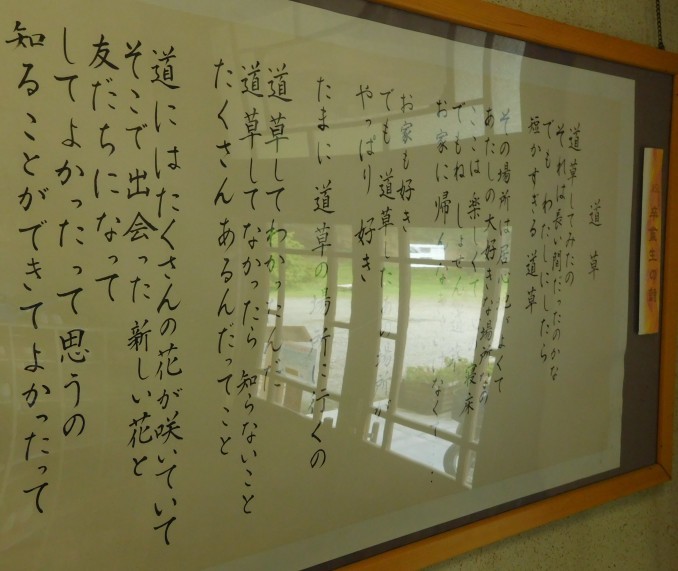 道草
道草してみたの
それは長い間だったのかな
でも わたしにしたら
短かすぎる 道草
その場所は居心地がよくて
あたしの大好きな場所なの
ここは 楽しくて 寝床
でもね しょせん
お家に帰
お家も好き
でも 道草した
やっぱり 好き
たまに 道草の場所に行くの
道草してわかったんだ
道草してなかったら 知らないこと
たくさん あるんだってこと
道にはたくさんの花が咲いていて
そこで出会った 新しい花と
友だちになって
してよかったって思うの
知ることができてよかったって